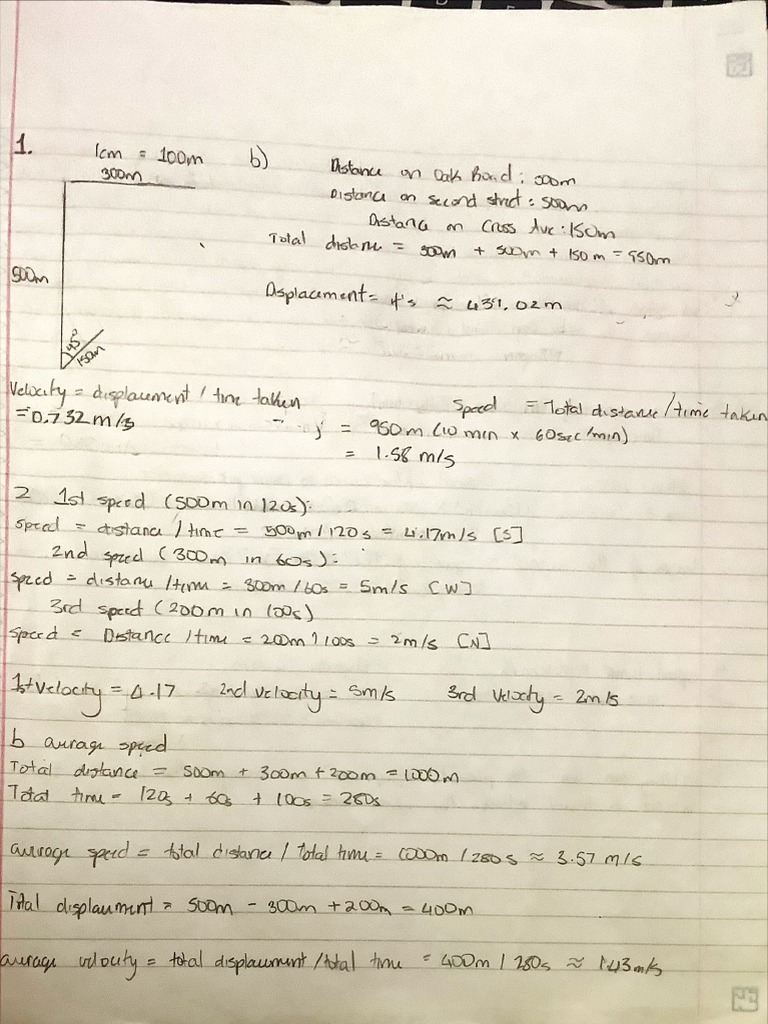 1.
1cm = 100m
300m
500m
45°
150m
b)
Distance on Oak Road: 300m
Distance on second street: 500m
Distance on Cross Ave: 150m
Total distance = 300m + 500m + 150m = 950m
Displacement = ≈ 439.02m
Velocity = displacement / time taken
= 0.732 m/s
Speed = Total distance / time taken
= 950m (10 min x 60sec/min)
= 1.58 m/s
2 1st speed (500m in 120s):
speed = distance / time = 500m / 120s = 4.17m/s [S]
2nd speed (300m in 60s):
speed = distance / time = 300m / 60s = 5m/s [W]
3rd speed (200m in 100s)
speed = Distance / time = 200m / 100s = 2m/s [N]
1st velocity = 4.17 2nd velocity = 5m/s 3rd velocity = 2m/s
b average speed
Total distance = 500m + 300m + 200m = 1000m
Total time = 120s + 60s + 100s = 280s
average speed = total distance / total time = 1000m / 280s ≈ 3.57 m/s
Total displacement = 500m - 300m + 200m = 400m
average velocity = total displacement / total time = 400m / 280s ≈ 1.43m/s